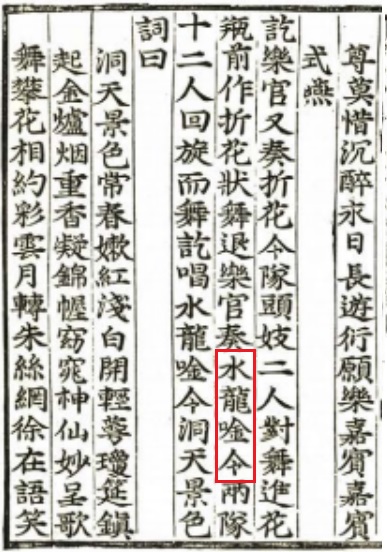 尊莫惜沉醉永日長遊衍願樂嘉賓嘉賓
式燕
訖樂官又奏折花令隊頭妓二人對舞進花
瓶前作折花狀舞退樂官奏水龍唫令兩隊
十二人回旋而舞訖唱水龍唫令洞天景色
詞曰
洞天景色常春嫩紅淺白開輕萼瓊筵鎮
起金爐烟重香凝錦幄窈窕神仙妙呈歌
舞攀花相約彩雲月轉朱絲網徐在語笑